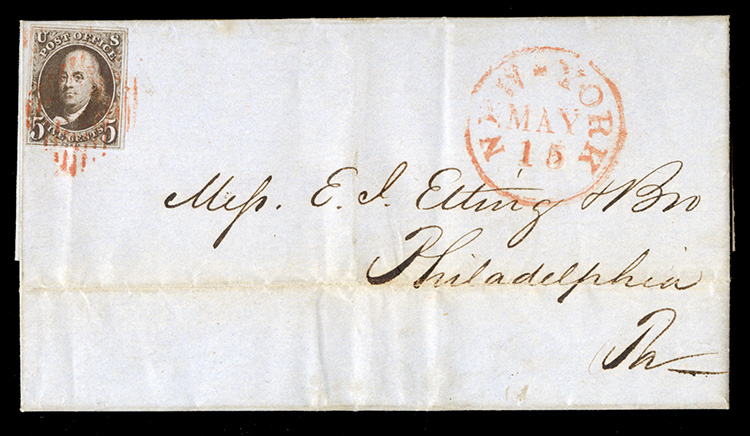 U S
POST OFFICE
5 FIVE CENTS 5
NEW YORK
MAY
15
Mess. E. J. Etting & Bro
Philadelphia
Pa